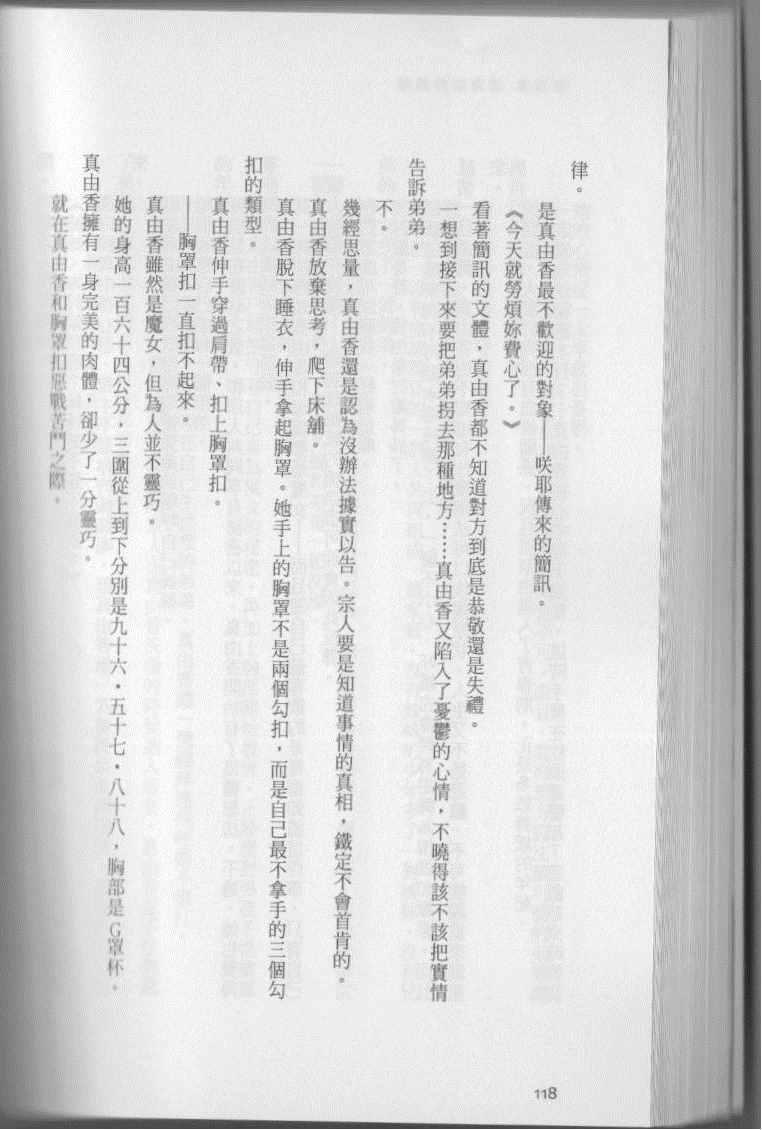 律。
是真由香最不歡迎的對象——咲耶傳來的簡訊。
《今天就勞煩妳費心了。》
看著簡訊的文體，真由香都不知道對方到底是恭敬還是失禮。
一想到接下來要把弟弟拐去那種地方……真由香又陷入了憂鬱的心情，不曉得該不該把實情
告訴弟弟。
不。
幾經思量，真由香還是認為沒辦法據實以告。宗人要是知道事情的真相，鐵定不會首肯的。
真由香放棄思考，爬下床舖。
真由香脫下睡衣，伸手拿起胸罩。她手上的胸罩不是兩個勾扣，而是自己最不拿手的三個勾
扣的類型。
真由香伸手穿過肩帶、扣上胸罩扣。
——胸罩扣一直扣不起來。
真由香雖然是魔女，但為人並不靈巧。
她的身高一百六十四公分，三圍從上到下分別是九十六・五十七・八十八，胸部是G罩杯。
真由香擁有一身完美的肉體，卻少了一分靈巧。
就在真由香和胸罩扣惡戰苦鬥之際。
118